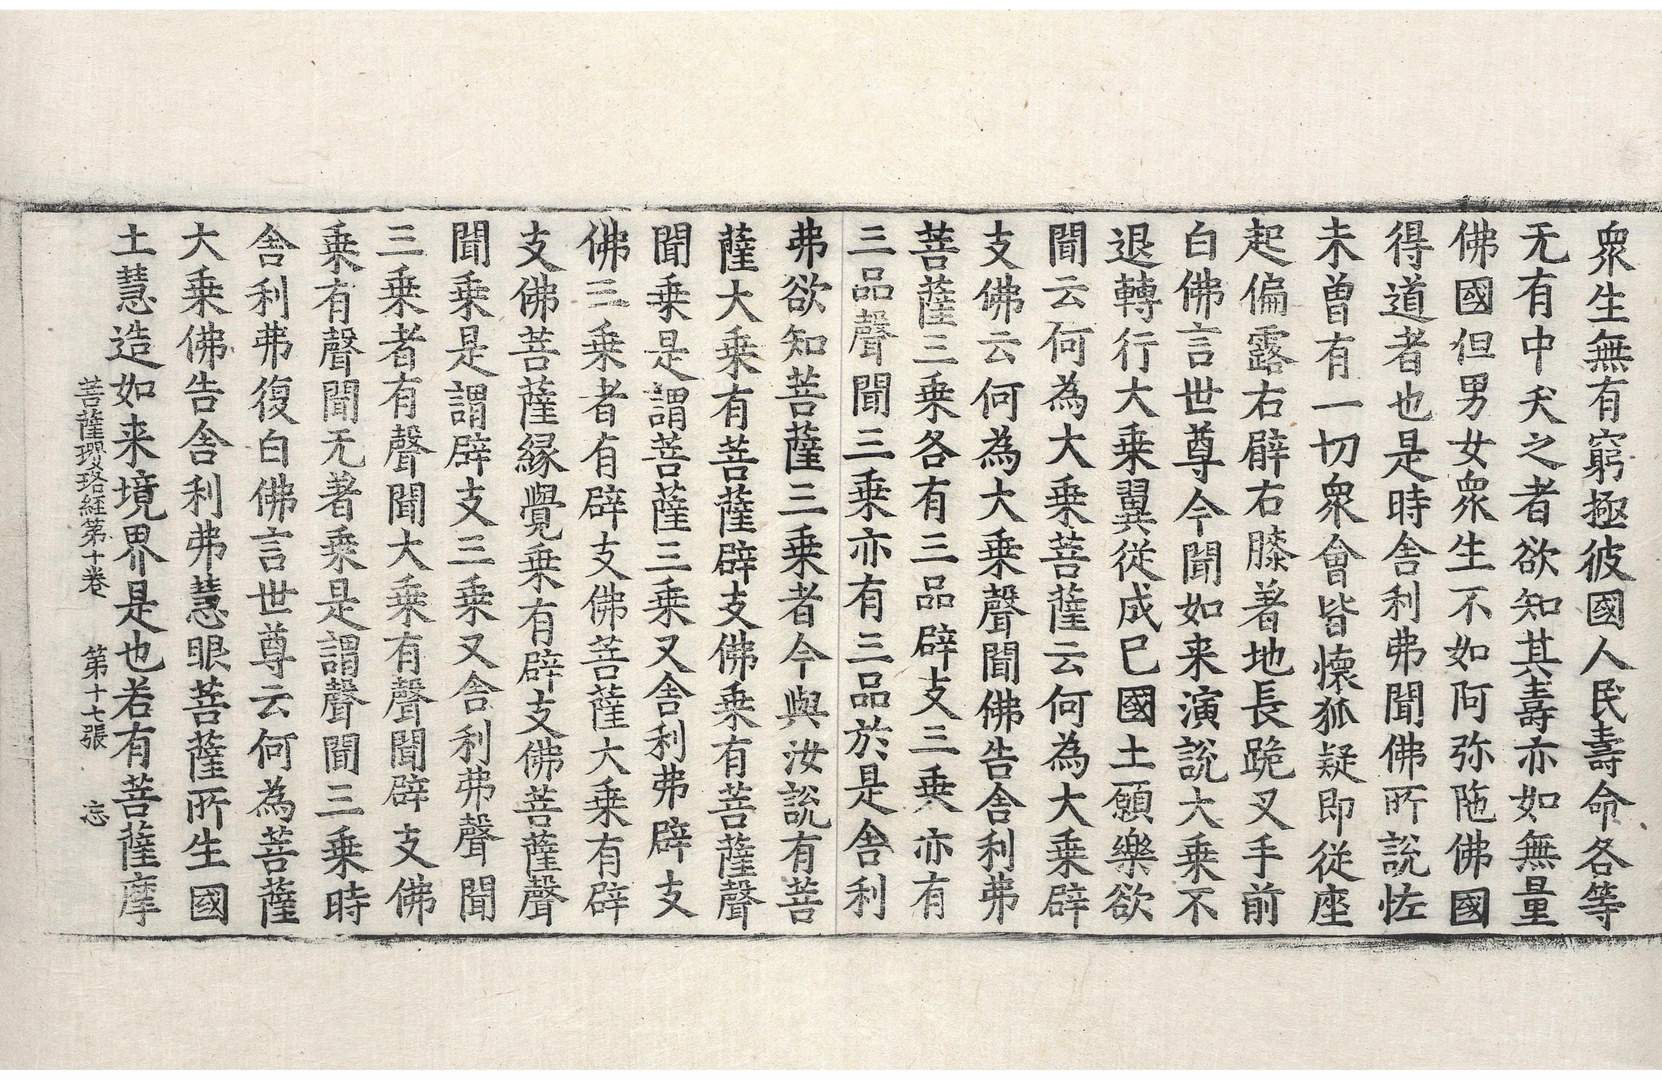 衆生無有窮極彼國人民壽命各等
无有中夭之者欲知其壽亦如無量
佛國但男女衆生不如阿弥陁佛國
得道者也是時舎利弗聞佛所說恠
未曽有一切衆會皆懐狐疑即從座
起偏露右臂右膝著地長跪叉手前
白佛言世尊今聞如来演說大乗不
退轉行大乗翼從成已國土願樂欲
聞云何為大乗菩薩云何為大乗辟
支佛云何為大乗聲聞佛告舎利弗
菩薩三乗各有三品辟支三乗亦有
三品聲聞三乗亦有三品於是舎利
弗欲知菩薩三乗者今與汝說有菩
薩大乗有菩薩辟支佛乗有菩薩聲
聞乗是謂菩薩三乗又舎利弗辟支
佛三乗者有辟支佛菩薩大乗有辟
支佛菩薩縁覺乗有辟支佛菩薩聲
聞乗是謂辟支三乗又舎利弗聲聞
三乗者有聲聞大乗有聲聞辟支佛
乗有聲聞无著乗是謂聲聞三乗時
舎利弗復白佛言世尊云何為菩薩
大乗佛告舎利弗慧眼菩薩所生國
土慧造如来境界是也若有菩薩摩
菩薩瓔珞經第十卷 第十七張 忘